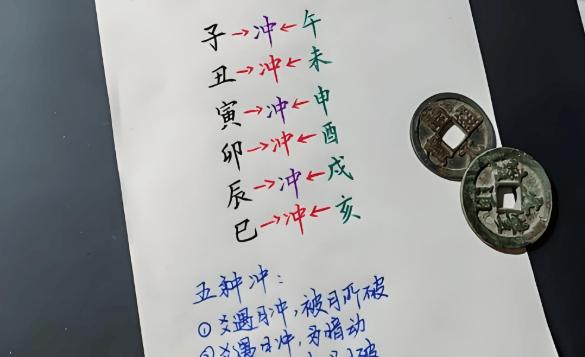 子→冲←午
丑→冲←未
寅→冲←申
卯→冲←酉
辰→冲←戌
巳→冲←亥
五种冲:
①爻遇月冲,被月所破
②爻遇日冲,为暗动